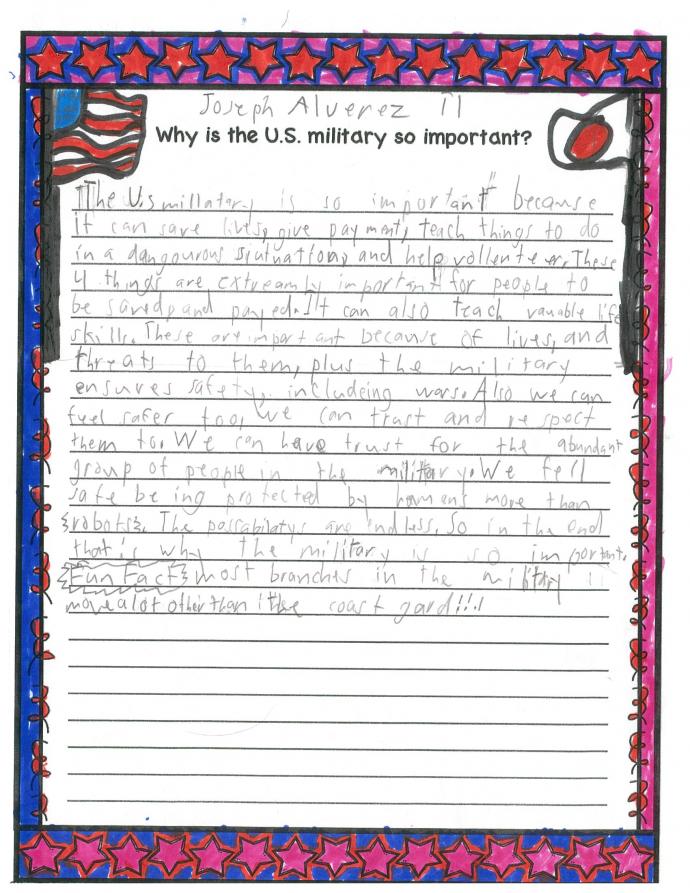 Joseph Alverez 11
Why is the U.S. military so important?
"The U.s millatary is so important" because
it can save lives, give payment, teach things to do
in a dangourous siutuation, and help vollenteer. These
4 things are extreamly important for people to
be saved, and payed. It can also teach vauable life
skills. These are important because of lives, and
threats to them, plus the military
ensures safety, includeing wars. Also we can
feel safer too, we can trust and respect
them to. We can have trust for the abundant
group of people in the military. We fell
safe being protected by humens more than
robots. The possabilatys are endless. So in the end
that is why the military is so important.
Fun Fact most branches in the military
move a lot other than the coast gard!!!